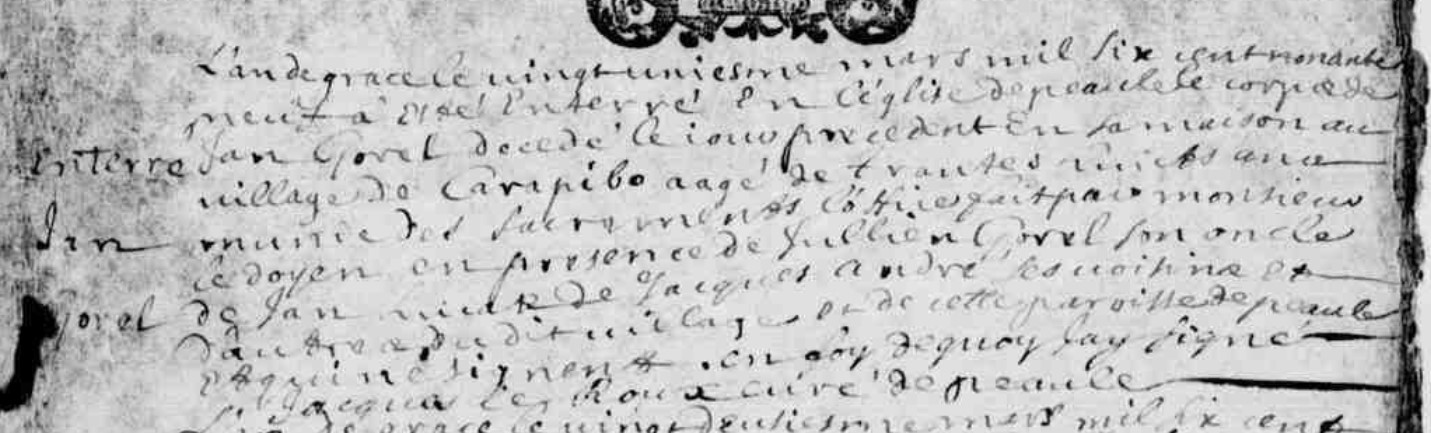 L'an de grace le uingt uniesme mars mil six cent nonante
neuf a esté Enterré En l'église de peaule le corps de
Enterré Jan Gorel decedé le iour precedent En sa maison au
uillage de Carapibo aagé de trantes huict ans
Jan munie des sacrements l'office fait par monsieur
le doyen en presence de Jullien Gorel son oncle
Gorel de Jan de Jacques André ses uoisins et
d'autres du dit uillage et de cette paroisse de peaule
et qui ne signent . en foy de quoy Jay signé
Jacques le Roux curé de peaule
L'an de grace le uingt deusiesme mars mil six cent